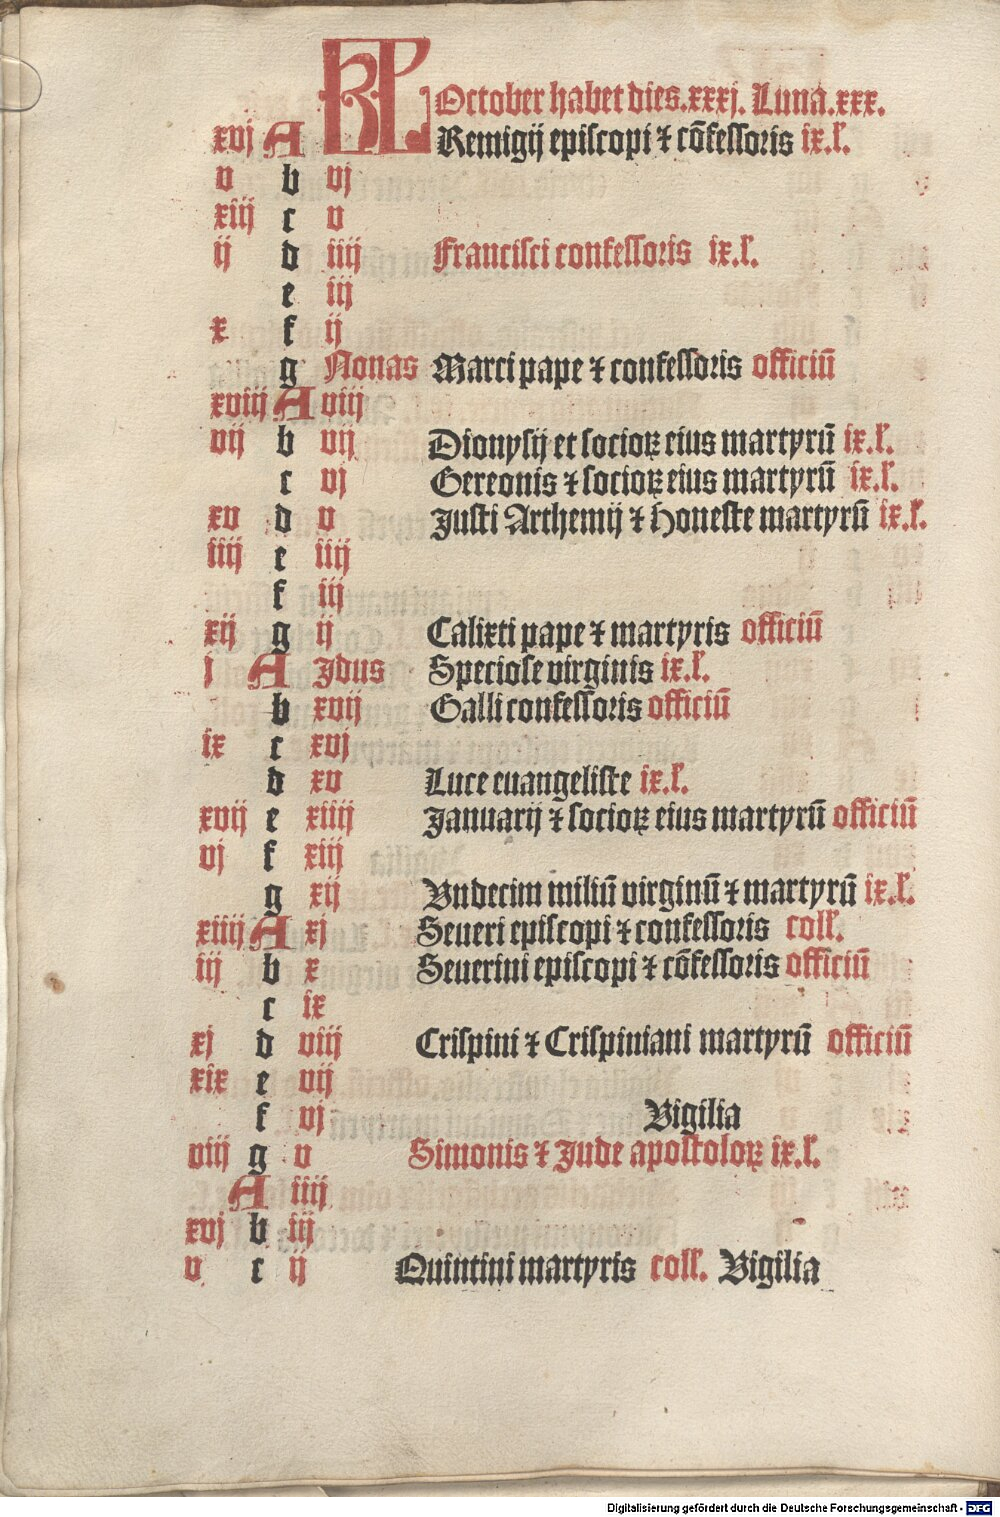 KL October habet dies.xxxj. Luna.xxx.
xvj A Remigij episcopi ⁊ cōfessoris ix.l'.
v b vj
xiij c v
ij d iiij Francisci confessoris ix.l'.
e iij
x f ij
g Nonas Marci pape ⁊ confessoris officiū
xviij A viij
vij b vij Dionysij et socioꝝ eius martyrū ix.l'.
c vj Gereonis ⁊ socioꝝ eius martyrū ix.l'.
xv d v Justi Arthemij ⁊ Honeste martyrū ix.l'.
iiij e iiij
f iij
xij g ij Calixti pape ⁊ martyris officiū
j A Jdus Speciose virginis ix.l'.
b xvij Galli confessoris officiū
ix c xvj
d xv Luce euangeliste ix.l'.
xvij e xiiij Januarij ⁊ socioꝝ eius martyrū officiū
vj f xiij
g xij Vndecim miliū virginū ⁊ martyrū ix.l'.
xiiij A xj Seueri episcopi ⁊ confessoris coll'.
iij b x Seuerini episcopi ⁊ cōfessoris officiū
c ix
xj d viij Crispini ⁊ Crispiniani martyrū officiū
xix e vij
f vj Vigilia
viij g v Simonis ⁊ Jude apostoloꝝ ix.l'.
A iiij
xvj b iij
v c ij Quintini martyris coll'. Vigilia
Digitalisierung gefördert durch die Deutsche Forschungsgemeinschaft - DFG